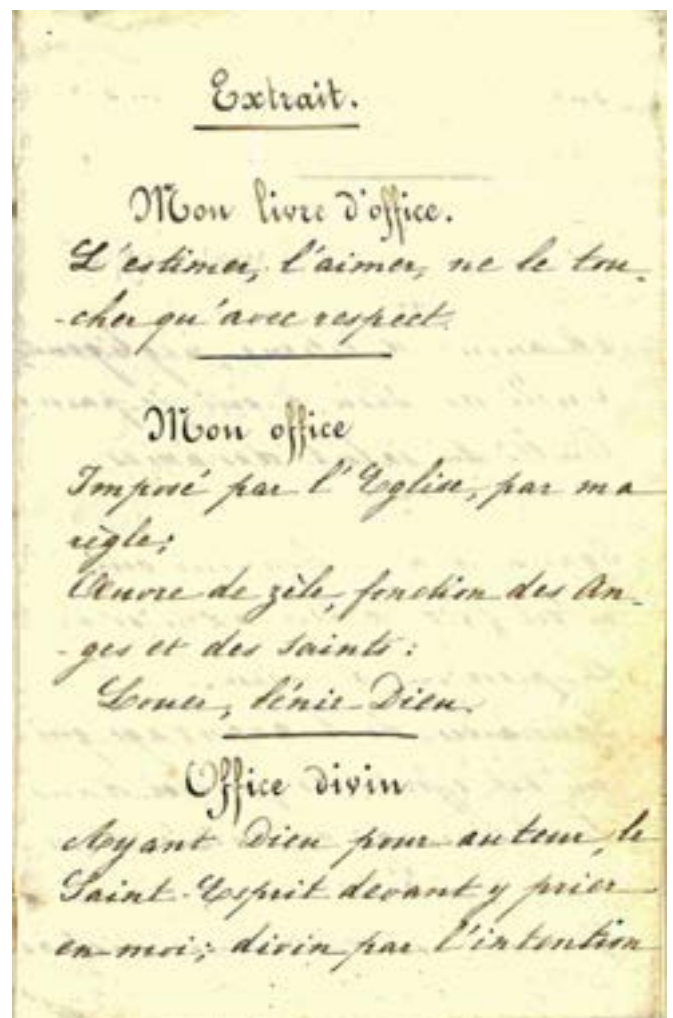 Extrait.
Mon livre d'office.
L'estimer, l'aimer, ne le tou-
-cher qu'avec respect.
Mon office
Imposé par l'Eglise, par ma
règle;
Œuvre de zèle, fonction des An-
-ges et des saints:
Louer, bénir Dieu.
Office divin
Ayant Dieu pour auteur, le
Saint-Esprit devant y prier
en moi; divin par l'intention